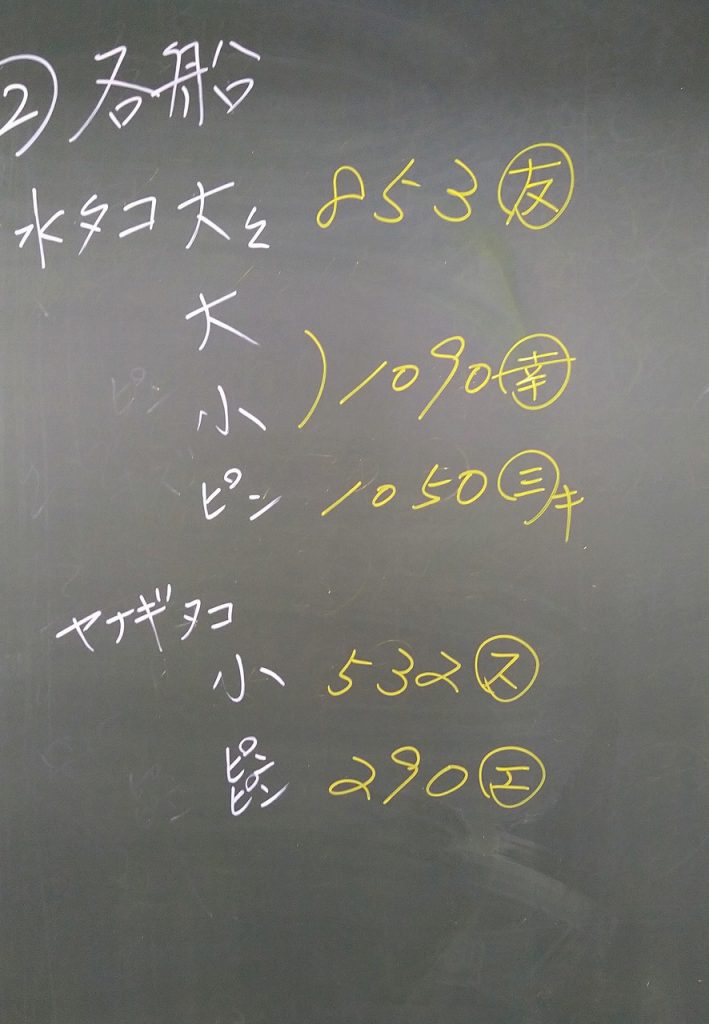 ② 各船
水タコ 大々 853 友
大
小 ) 1090 幸
ピン 1050 三キ
ヤナギタコ
小 532 ス
ピンピン 290 エ